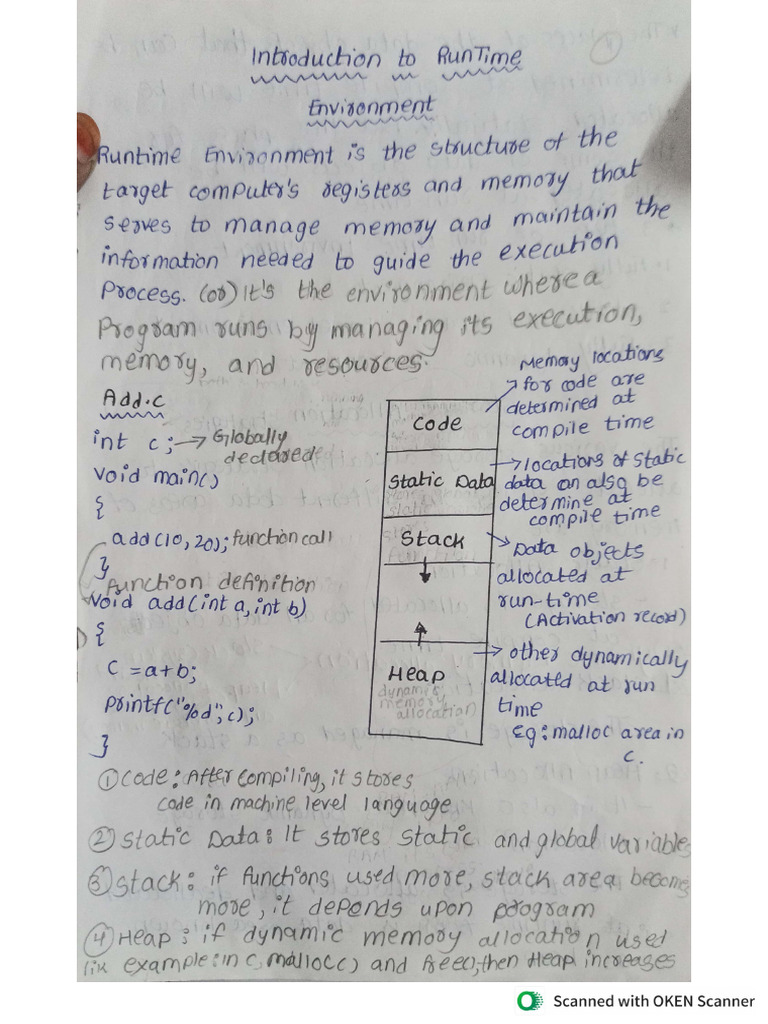 Introduction to RunTime
Environment
Runtime Environment is the structure of the
target computer's registers and memory that
serves to manage memory and maintain the
information needed to guide the execution
Process. (or) It's the environment where a
Program runs by managing its execution,
memory, and resources.
Add.c
int c; → Globally
declared
void main()
{
add(10, 20); function call
}
function definition
void add(int a, int b)
{
C = a+b;
printf("%d", c);
}
Code
Memory locations
for code are
determined at
compile time
Static Data
locations of static
data an also be
determine at
compile time
Stack
Data objects
allocated at
run-time
(Activation record)
Heap
dynamic
memory
allocation
other dynamically
allocated at run
time
Eg: malloc area in
C.
① Code: After compiling, it stores
code in machine level language
② Static Data: It stores static and global variables
③ Stack: if functions used more, stack area become
more, it depends upon program
④ Heap: if dynamic memory allocation used
lik example: in c, malloc() and free(), then Heap increases
Scanned with OKEN Scanner